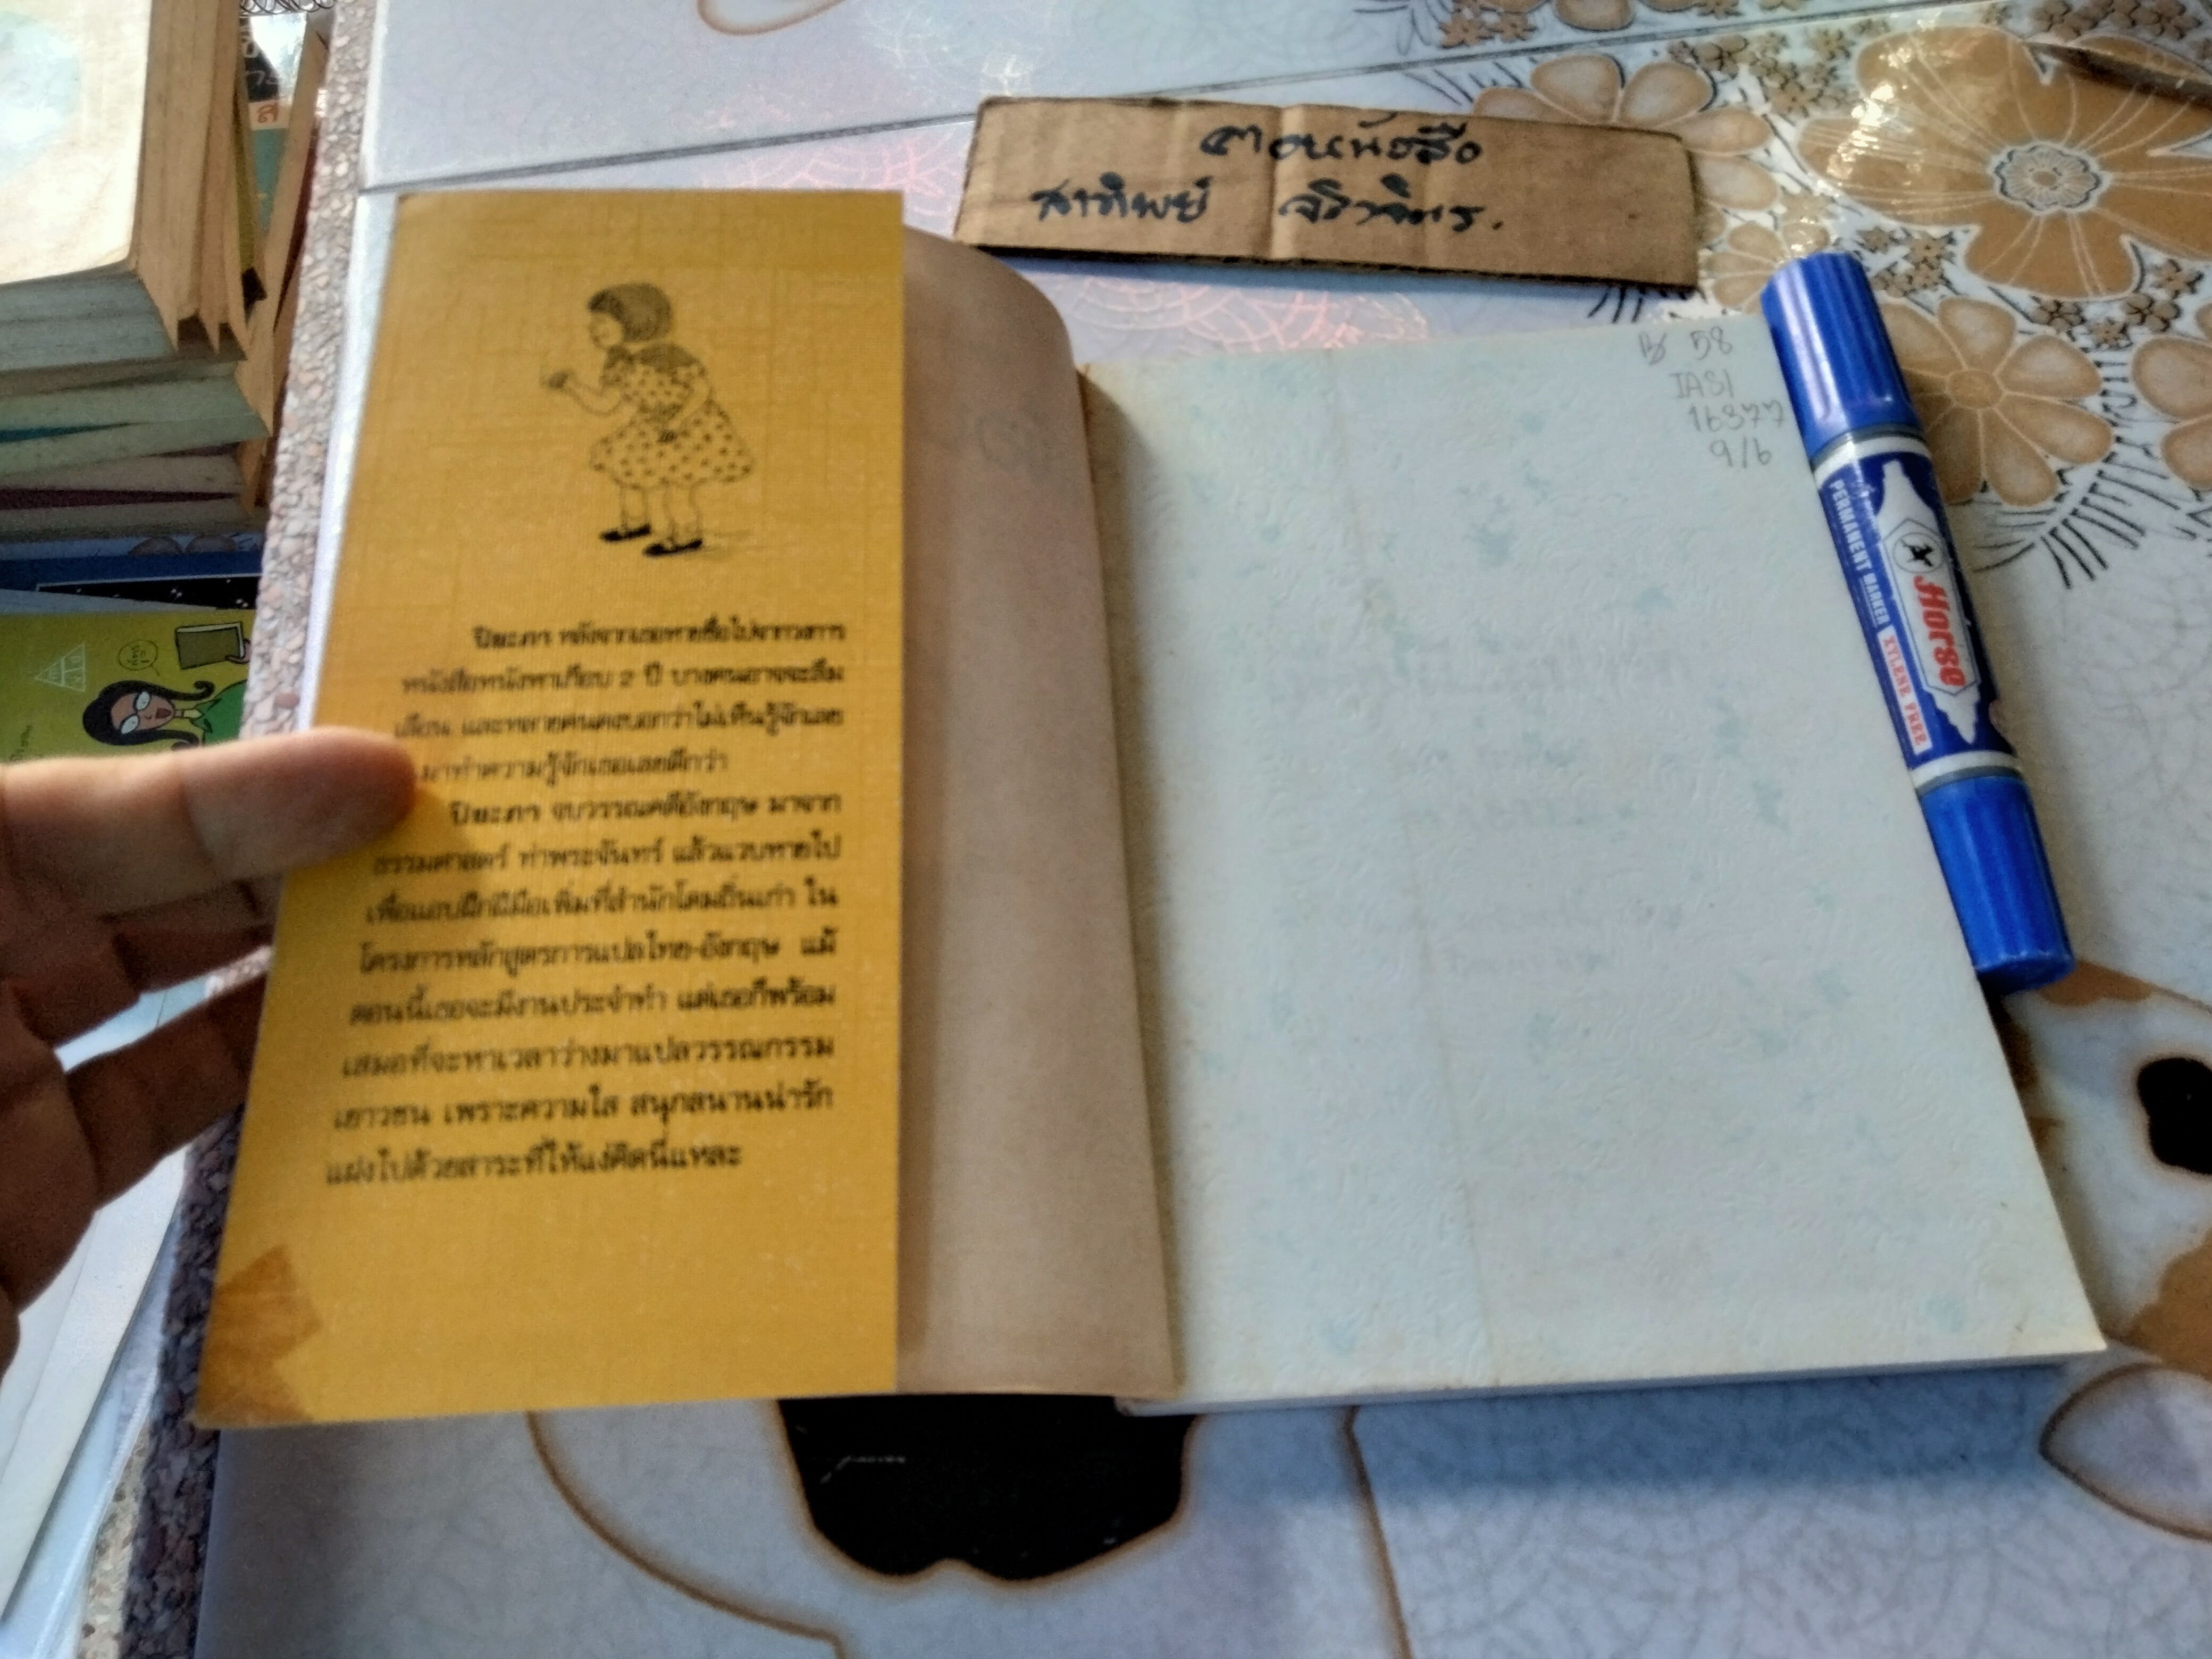 สาทิพย์
ปิยะภา หลังจากเธอหายชื่อไปจากวงการ
หนังสือหนังหาเกือบ 2 ปี บางคนอาจจะลืม
เลือน และหลายคนคงบอกว่าไม่เห็นรู้จักเลย
มาทำความรู้จักเธอเลยดีกว่า
ปิยะภา จบวรรณคดีอังกฤษ มาจาก
ธรรมศาสตร์ ท่าพระจันทร์ แล้วแวบหายไป
เพื่อแอบฝึกฝีมือเพิ่มที่สำนักโดมถิ่นเก่า ใน
โครงการหลักสูตรการแปลไทย-อังกฤษ แม้
ตอนนี้เธอจะมีงานประจำทำ แต่เธอก็พร้อม
เสมอที่จะหาเวลาว่างมาแปลวรรณกรรม
เยาวชน เพราะความใส สนุกสนานน่ารัก
แฝงไปด้วยสาระที่ให้แง่คิดนี่แหละ
58
IASI
16377
9/6
Horse
PERMANENT MARKER
XYLENE FREE